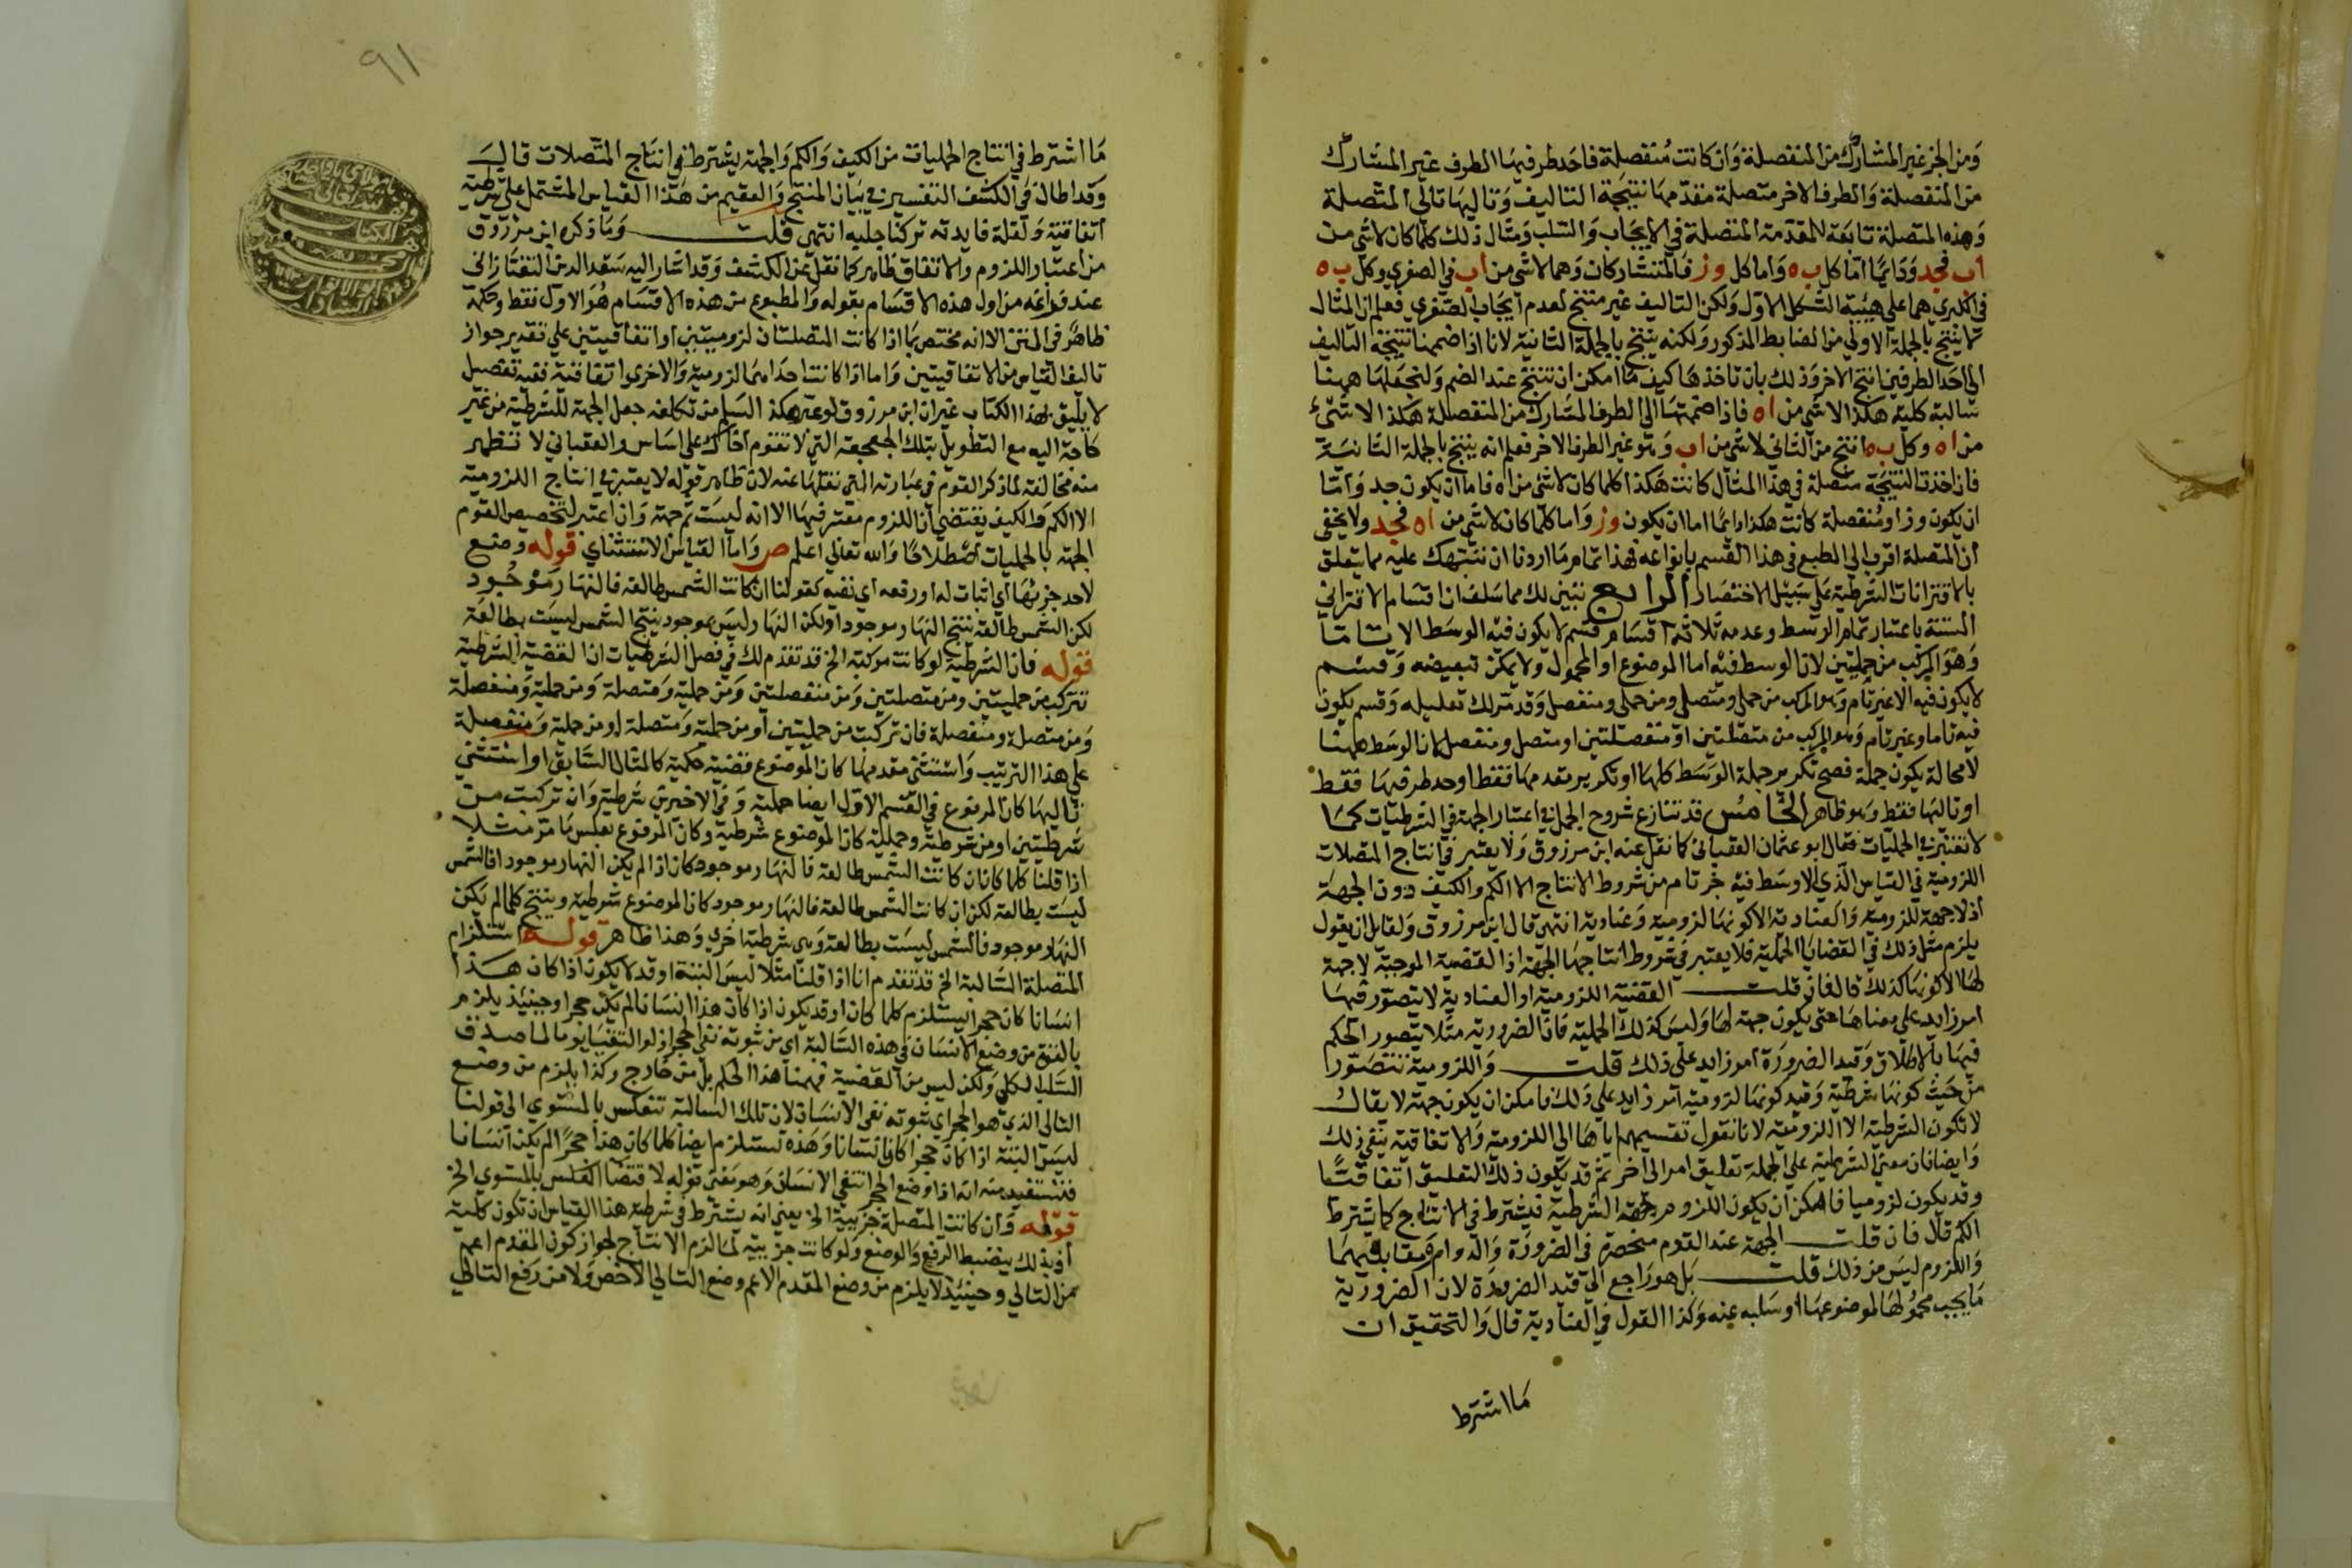 ومن الجزء غير المشارك من المنفصلة وان كانت منفصلة فاحد طرفيها الطرف غير المشارك
من المنفصلة والطرف الاخر متصلة مقدمها نتيجة التاليف وتاليها تالي المتصلة
وهذه المتصلة تابعة للمقدمة المتصلة في الايجاب والسلب ومثال ذلك كلما كان لا شي من
اب فجد ودايما اما كل ب ه واما كل وز فالمتشاركان وهما لا شي من اب في الصغري وكل ب ه
في الكبري هما علي هيئة الشكل الاول ولكن التاليف غير منتج لعدم ايجاب الصغري فعلم ان المثال
لا ينتج بالجملة الاولي من الضابط المذكور ولكنه ينتج بالجملة الثانية لانا اذا ضممنا نتيجة التاليف
الي احد الطرفين انتج الاخر وذلك بان ناخذها كيف ما امكن ان تنتج عند الضم ولنجعلها ههنا
سالبة كلية هكذا لا شي من اه فاذا ضممتها الي الطرف المشارك من المنفصلة هكذا لا شيء
من اه وكل ب ه انتج من الثاني لا شي من اب وهو غير الطرف الاخر فعلم انه ينتج بالجملة الثانية
فان اخذت النتيجة متصلة في هذا المثال كانت هكذا كلما كان لا شي من اه فاما ان يكون جد واما
ان يكون وز او منفصلة كانت هكذا دايما اما ان يكون وز واما كلما كان لا شي من اه فجد ولا يخفي
ان المتصلة اقرب الي الطبع في هذا القسم بانواعه فهذا تمام ما اردنا ان ننبهك عليه مما يتعلق
بالاقترانات الشرطية علي سبيل الاختصار الرابع تبين لك مما سلف ان اقسام الاقتراني
الستة باعتبار تمام الوسط وعدمه ثلاثة اقسام قسم لا يكون فيه الوسط الا تاما
وهو المركب من حمليتين لان الوسط فيه اما الموضوع او المحمول ولا يمكن تبعيضه وقسم
لا يكون فيه الا غير تام وهو المركب من حملي ومتصل ومن حملي ومنفصل وقد مر لك تعليله وقسم يكون
فيه تاما وغير تام وهو المركب من متصلتين او منفصلتين او متصل ومنفصل لان الوسط ههنا
لا محالة يكون جملة فصح تكرير جملة الوسط كلها او تكرير مقدمها فقط او احد طرفيها فقط
او تاليها فقط وهو ظاهر الخامس قد تنازع شروح الجمل في اعتبار الجهة في الشرطيات كما
لا تعتبر في الحمليات فقال ابو عثمان العقباني كما نقل عنه ابن مرزوق ولا يعتبر في انتاج المتصلات
اللزومية في القياس الذي الاوسط فيه جزء تام من شروط الانتاج الا الكم والكيف دون الجهة
اذ لا جهة للزومية والعنادية الا كونها لزومية وعنادية انتهي قال ابن مرزوق ولقايل ان يقول
يلزم مثل ذلك في القضايا الحملية فلا يعتبر في شروط انتاجها الجهة اذ القضية الموجبة لا جهة
لها الا كونها كذلك قال فان قلت القضية اللزومية او العنادية لا يتصور فيها
امر زايد علي معناها حتي يكون جهة لها وليس كذلك الحملية فان الضرورية مثلا يتصور الحكم
فيها بالاطلاق وقيد الضرورة امر زايد علي ذلك قلت واللزومية تتصور
من حيث كونها شرطية وقيد كونها لزومية امر زايد علي ذلك فامكن ان يكون جهة لا يقال
لا تكون الشرطية الا اللزومية لانا نقول تقسيمهم اياها الي اللزومية والاتفاقية ينفي ذلك
وايضا فان معني الشرطية علي الجملة تعليق امر الي اخر ثم قد يكون ذلك التعليق اتفاقيا
وقد يكون لزوميا فامكن ان يكون اللزوم جهة الشرطية فيشترط في الانتاج كما يشترط
الكم قال فان قلت الجهة عند القوم منحصرة في الضرورة والدوام ومقابليهما
واللزوم ليس من ذلك قلت بل هو راجع الي قيد الضرورة لان الضرورية
ما يجب محمولها لموضوعها او سلبه عنه وكذا القول في العنادية قال والتحقيق ان
ما اشترط
٩١
ما اشترط في انتاج الحمليات من الكيف والكم والجهة يشترط في انتاج المتصلات قال
وقد اطال في الكشف التفسير في بيان المنتج والعقيم من هذا القياس المشتمل علي شرطية
اتفاقية ولقلة فايدته تركنا جلبه انتهي قلت وما ذكره ابن مرزوق
من اعتبار اللزوم والاتفاق ظاهر كما نقل عن الكشف وقد اشار اليه سعد الدين التفتازاني
عند فراغه من اول هذه الاقسام بقوله والمطبوع من هذه الاقسام هو الاول فقط وحكمه
ظاهر في المتن الا انه مختص بما اذا كانت المتصلتان لزوميتين او اتفاقيتين علي تقدير جواز
تاليف القياس من الاتفاقيتين واما اذا كانت احداهما لزومية والاخري اتفاقية ففيه تفصيل
لا يليق بهذا الكتاب غير ان ابن مرزوق لو عبر هكذا لسلم من تكلفه جعل الجهة للشرطية من غير
حاجة اليه مع التطويل بتلك الجعجعة التي لا تقوم اذاك علي اساس والعقباني لا تظهر
منه مخالفة لما ذكر القوم في عبارته التي نقلها عنه لان ظاهر قوله لا يعتبر في انتاج اللزومية
الا الكم والكيف يقتضي ان اللزوم معتبر فيها الا انه ليس ثم جهة وان اعتبر لتخصيص القوم
الجهة بالحمليات اصطلاحا والله تعالي اعلم ص واما القياس الاستثناي قوله وضع
لاحد جزئها اي اثبات له او رفعه اي نفيه كقولنا ان كانت الشمس طالعة فالنهار موجود
لكن الشمس طالعة ينتج النهار موجود او لكن النهار ليس بموجود ينتج الشمس ليست بطالعة
قوله فان الشرطية لو كانت مركبة الخ قد تقدم لك في فصل الشرطيات ان القضية الشرطية
تتركب من حمليتين ومن متصلتين ومن منفصلتين ومن حملية ومتصلة ومن حملية ومنفصلة
ومن متصلة ومنفصلة فان تركبت من حمليتين او من حملية ومتصلة او من حملية ومنفصلة
علي هذا الترتيب واستثني مقدمها كان الموضوع قضية حملية كالمثال السابق او استثني
تاليها كان المرفوع في القسم الاول ايضا حملية وفي الاخيرين شرطية وان تركبت من
شرطيتين او من شرطية وحملية كان الموضوع شرطية وكان المرفوع بعكس ما مر مثلا
اذا قلنا كلما كان ان كانت الشمس طالعة فالنهار موجود كان اذا لم يكن النهار موجودا فالشمس
ليست بطالعة لكن ان كانت الشمس طالعة فالنهار موجود كان الموضوع شرطية وينتج كلما لم يكن
النهار موجود فالشمس ليست بطالعة وهي شرطية اخري وهذا ظاهر قوله استلزام
المتصلة السالبة الخ قد تقدم انا اذا قلنا مثلا ليس البتة او قد لا يكون اذا كان هذا
انسانا كان حجرا يستلزم كلما كان او قد يكون اذا كان هذا انسانا لم يكن حجرا وحينئذ يلزم
التالي الذي هو الحجر اي ثبوته نفي الانسان لان تلك السالبة تنعكس بالمستوي الي قولنا
ليس البتة اذا كان حجرا كان انسانا وهذه تستلزم ايضا كلما كان هذا حجرا لم يكن انسانا
فنستفيد منه انه اذا وضع الحجر انتفي الانسان وهو معني قوله لاقتضا العكس بالمستوي الخ
قوله وان كانت المتصلة جزيية الخ يعني انه يشترط في شرطية هذا القياس ان تكون كلية
اذ بذلك ينضبط الرفع والوضع ولو كانت جزيية لما لزم الانتاج لجواز كون المقدم اعم
من التالي وحينئذ لا يلزم من وضع المقدم الاعم وضع التالي الاخص ولا من رفع التالي